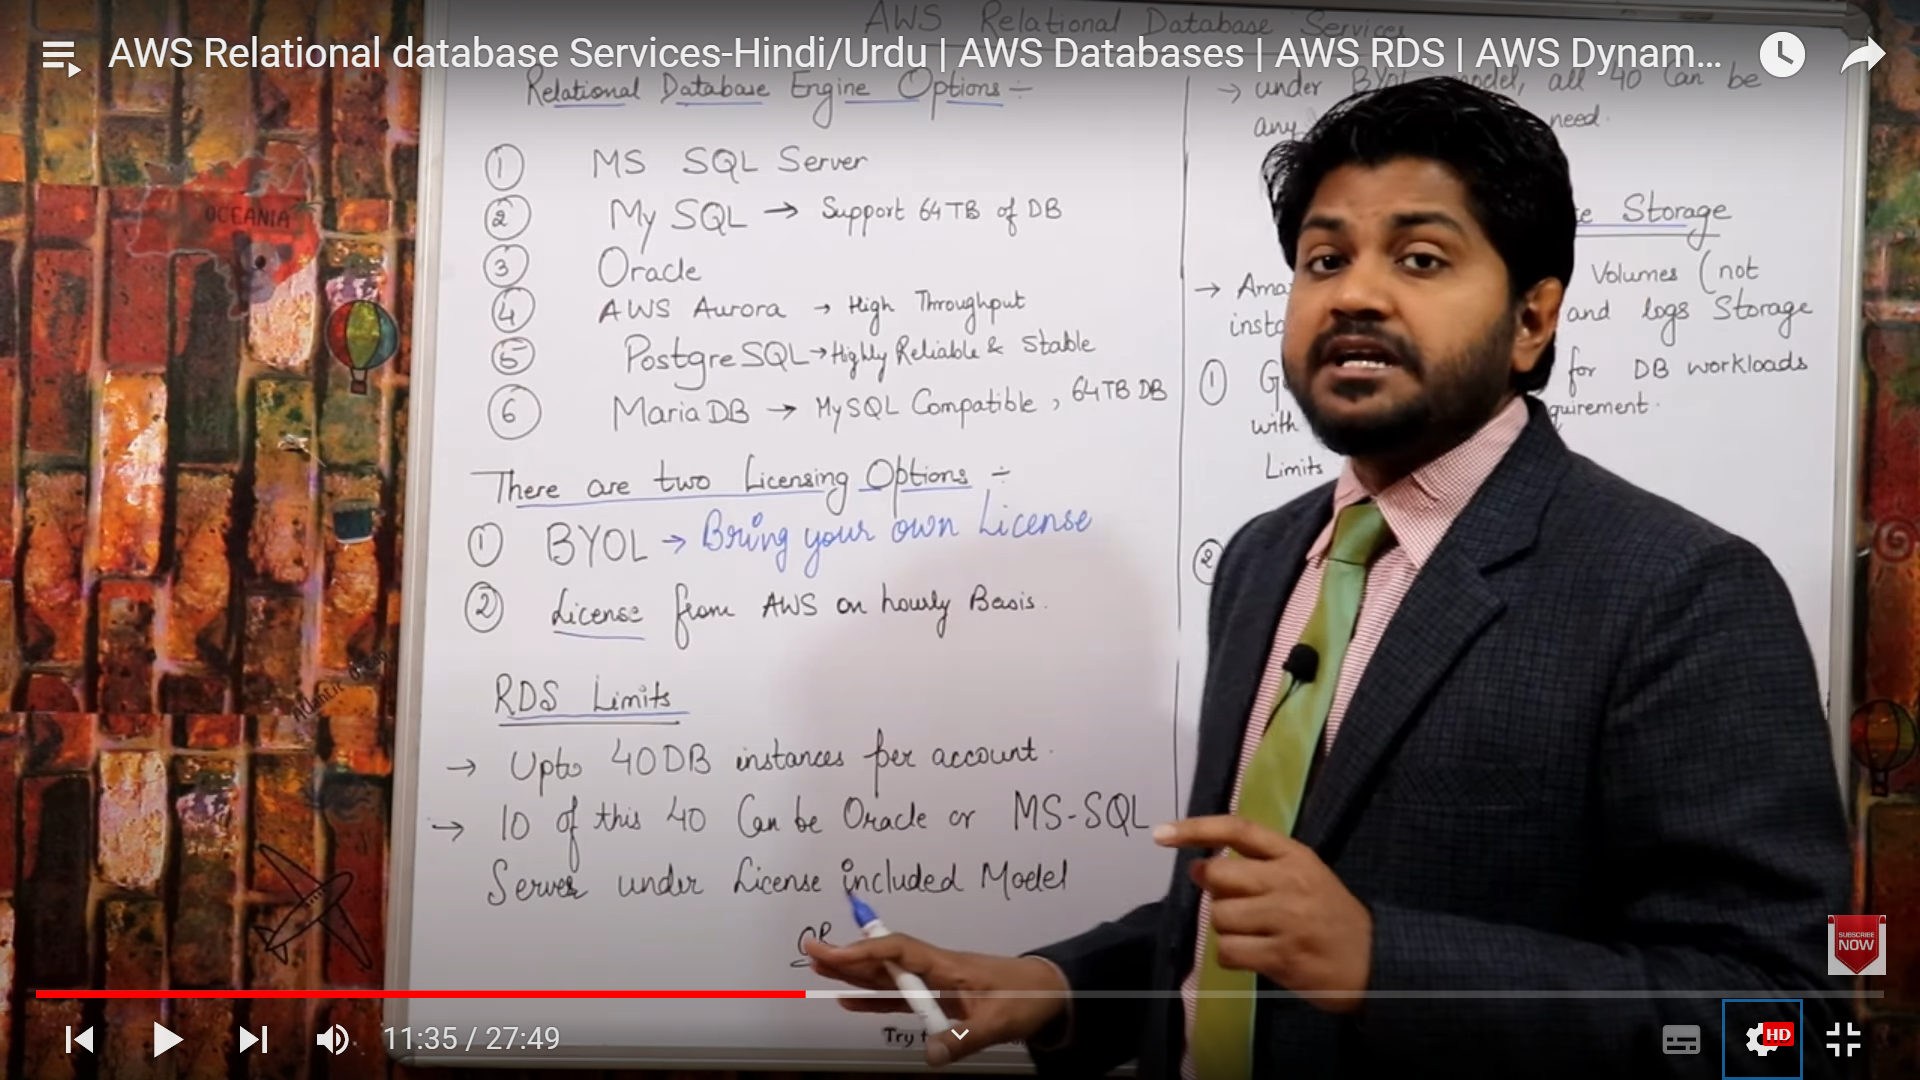 AWS Relational Database Services
AWS Relational database Services-Hindi/Urdu | AWS Databases | AWS RDS | AWS Dynam...
Relational Database Engine Options :-
1 MS SQL Server
2 My SQL → Support 64TB of DB
3 Oracle
4 AWS Aurora → High Throughput
5 PostgreSQL → Highly Reliable & Stable
6 MariaDB → MySQL Compatible, 64TB DB
There are two Licensing Options :-
1 BYOL → Bring your own License
2 License from AWS on hourly Basis.
RDS Limits
→ Upto 40DB instances per account.
→ 10 of this 40 Can be Oracle or MS-SQL
Server under License included Model
OR
→ under BYOL model, all 40 Can be
any need.
Storage
→ Volumes (not
and logs Storage
1 for DB workloads
with
Limits
2
OCEANIA
Atlantic
SUBSCRIBE
NOW
11:35 / 27:49
Try
HD